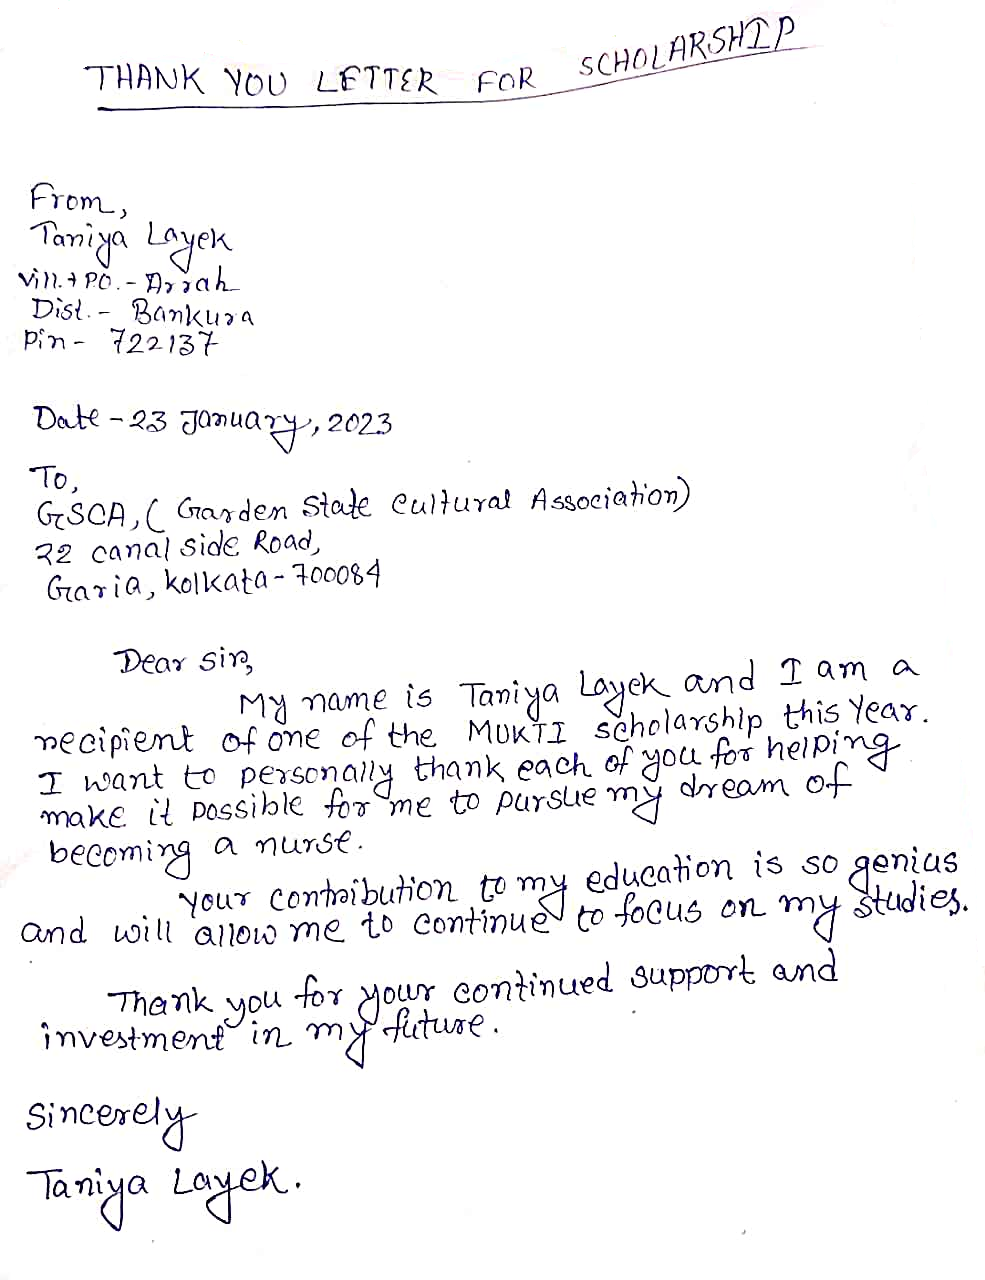 THANK YOU LETTER FOR SCHOLARSHIP
From,
Taniya Layek
Vill.+PO.- Arrah
Dist.- Bankura
Pin- 722137
Date - 23 January, 2023
To,
GSCA, ( Garden State Cultural Association)
22 canal side Road,
Garia, kolkata - 700084
Dear sir,
My name is Taniya Layek and I am a
recipient of one of the MUKTI scholarship this Year.
I want to personally thank each of you for helping
make it possible for me to pursue my dream of
becoming a nurse.
Your contribution to my education is so genius
and will allow me to continue to focus on my studies.
Thank you for your continued support and
investment in my future.
Sincerely
Taniya Layek.